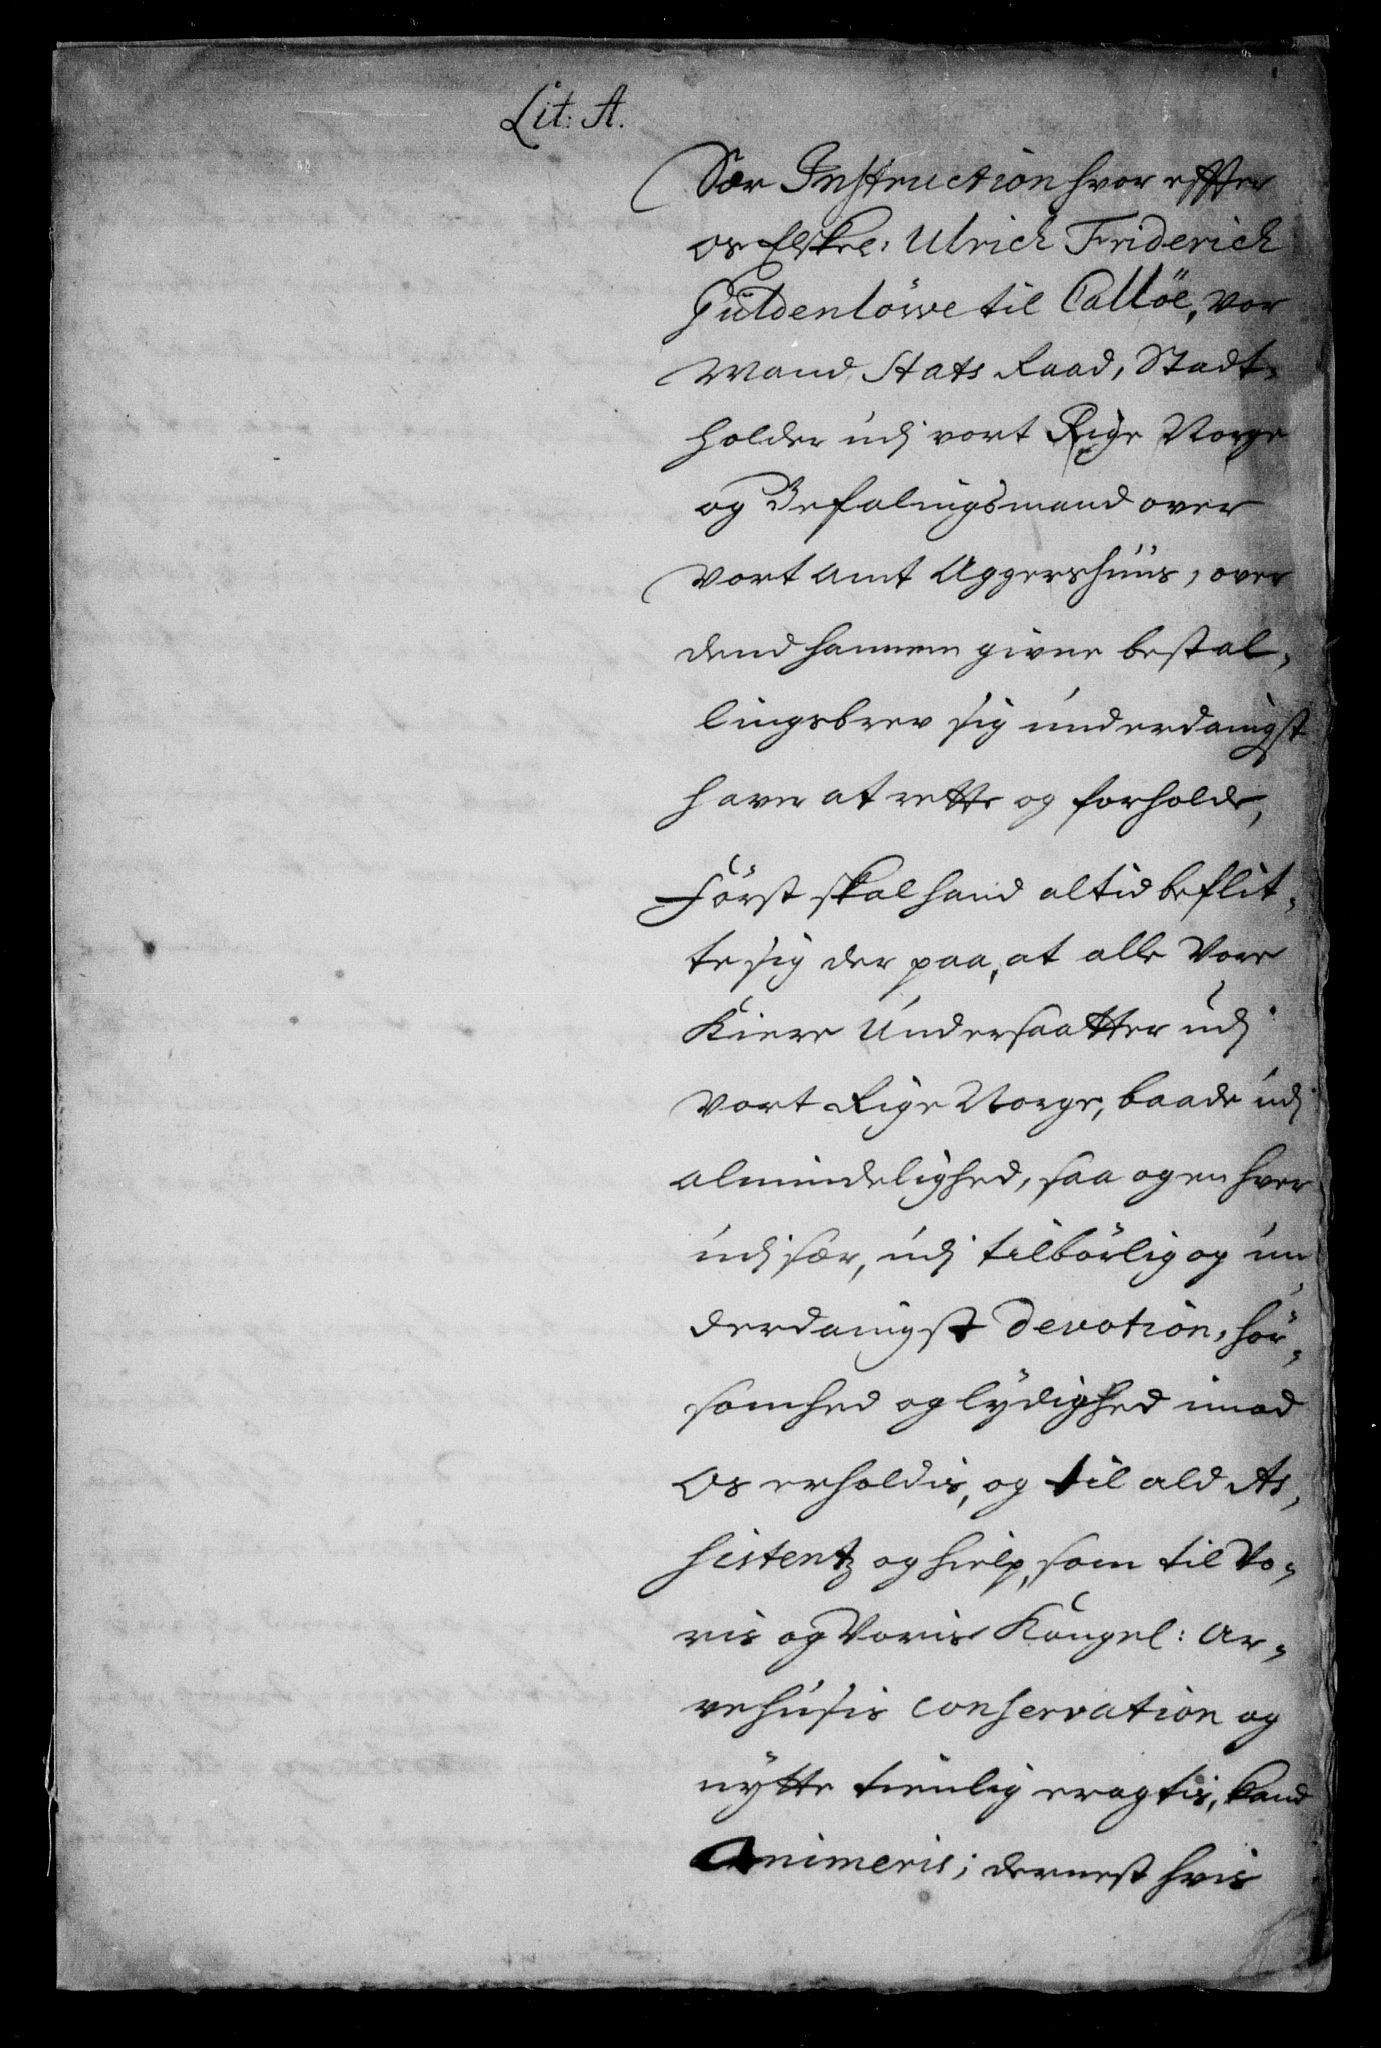 Lit: A.
Sær Instruction hvor effter
os Elskel: Ulrich Friderich
Güldenlöwe til Callöe, vor
Mand, Stats Raad, Stadt,
holder udj vort Rige Norge
og Befalingsmand over
Vort Amt Aggershuus, over
dend hannem givne bestal,
lingsbrev sig underdanigst
haver at rette og forholde,
Först skal hand altid beflit,
te sig der paa, at alle Vore
Kiere Undersaatter udj
Vort Rige Norge, baade udj
almindelighed, saa og en hver
udj sær, udj tilbörlig og un,
derdanigst Devotion, hör,
somhed og lydighed imod
Os erholdis, og til ald As,
sistentz og hielp, som til Vo,
ris og Voris Kongel: Ar,
vehusis conservation og
nytte tienlig eragtis, kand
Animeris; dernest hvis